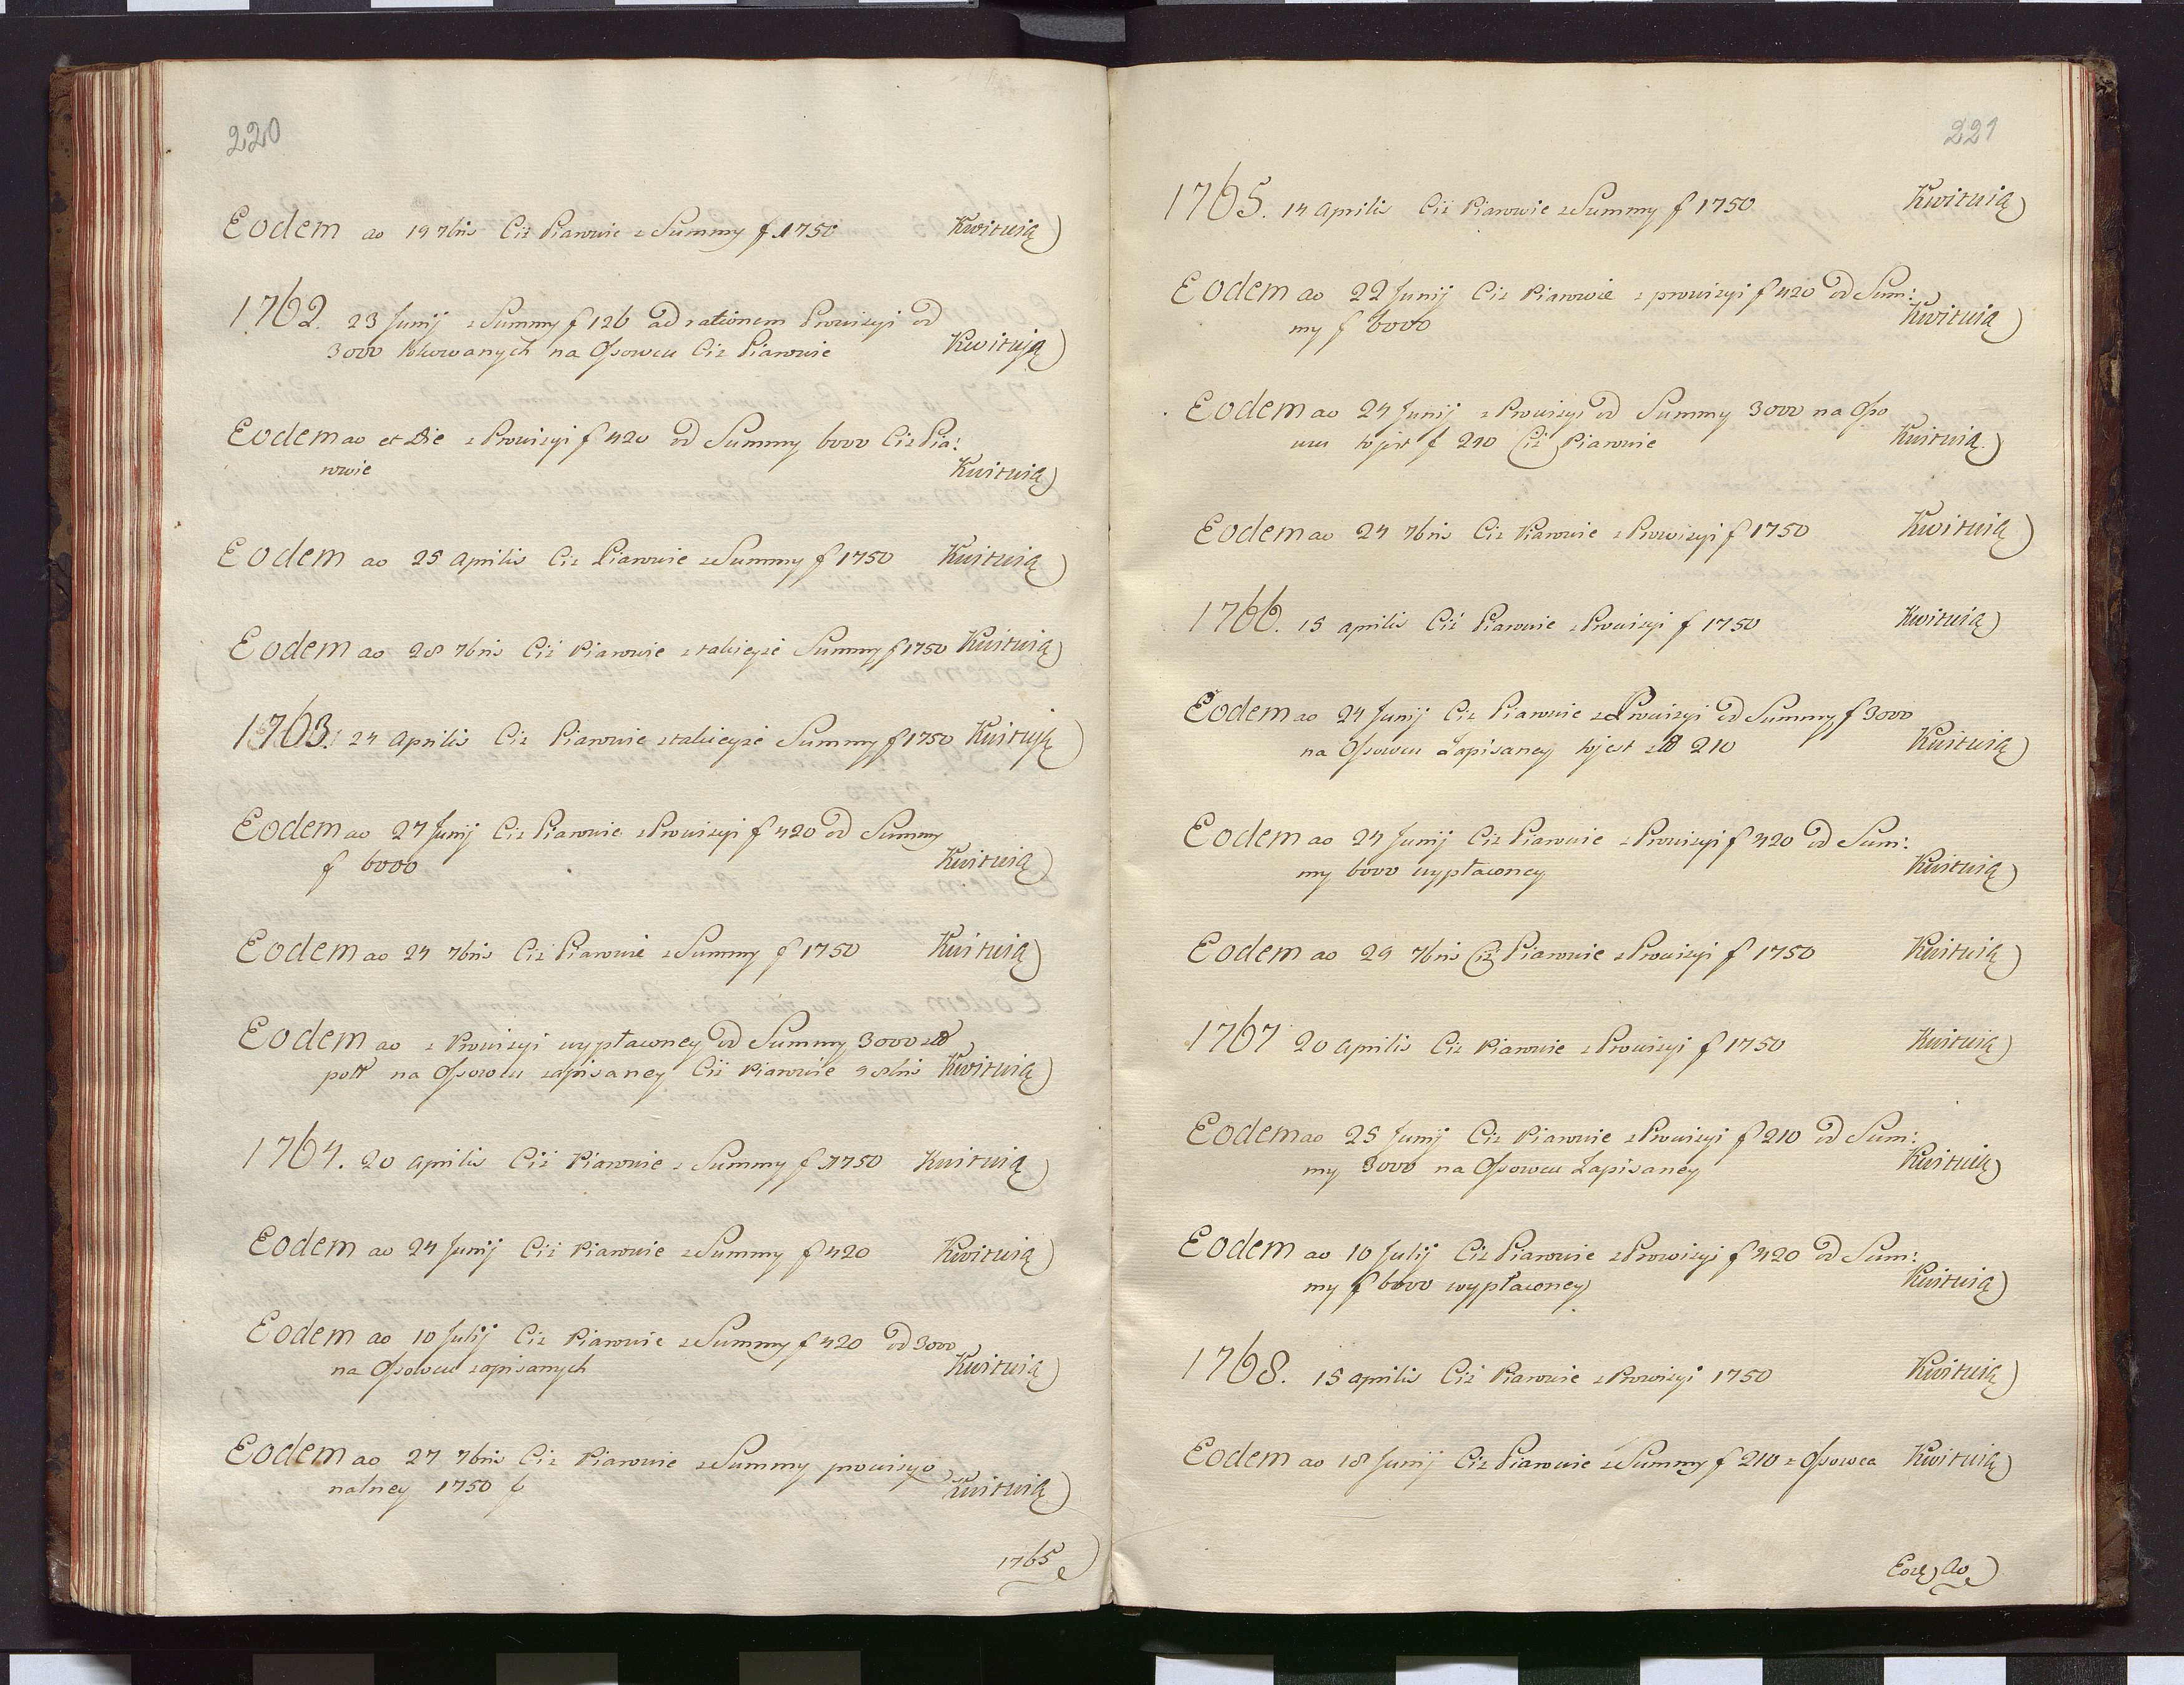 220
Eodem ao 19 7bris Ciż Piarowie z Summy f 1750 Kwituią
1762. 23 Junij z Summy f 126 ad rationem Prowizyi od
3000 lokowanych na Osowcu Ciż Piarowie Kwitują
Eodem ao et Die z Prowizyi f 420 od Summy 6000 Ciż Pia:
rowie Kwituią
Eodem ao 25 Aprilis Ciż Piarowie z Summy f 1750 Kwituią
Eodem ao 28 7bris Ciż Piarowie z takieyże Summy f 1750 Kwituią
1763. 24 Aprilis Ciż Piarowie z takieyże Summy f 1750 Kwitują
Eodem ao 27 Junij Ciż Piarowie z Prowizyi f 420 od Summy
f 6000 Kwituią
Eodem ao 24 7bris Ciż Piarowie z Summy f 1750 Kwituią
Eodem ao z Prowizyi wypłaconey od Summy 3000 zł
pol na Osowcu zapisaney Ciż Piarowie 8bris Kwituią
1764. 20 Aprilis Ciż Piarowie z Summy f 1750 Kwituią
Eodem ao 24 Junij Ciż Piarowie z Summy f 420 Kwituią
Eodem ao 10 Julij Ciż Piarowie z Summy f 420 od 3000
na Osowcu zapisanych Kwituią
Eodem ao 27 7bris Ciż Piarowie z Summy prowizyo
nalney 1750 f Kwituią
1765
221
1765. 14 Aprilis Ciż Piarowie z Summy f 1750 Kwituią
Eodem ao 22 Junij Ciż Piarowie z prowizyi f 420 od Sum:
my f 6000 Kwituią
Eodem ao 24 Junij z Prowizyi od Summy 3000 na Oso
wcu to jest f 210 Ciż Piarowie Kwituią
Eodem ao 24 7bris Ciż Piarowie z Prowizyi f 1750 Kwituią
1766. 15 Aprilis Ciż Piarowie z Prowizyi f 1750 Kwituią
Eodem ao 24 Junij Ciż Piarowie z Prowizyi od Summy f 3000
na Osowcu Zapisaney to jest zł 210 Kwituią
Eodem ao 24 Junij Ciż Piarowie z Prowizyi f 420 od Sum:
my 6000 wypłaconey Kwituią
Eodem ao 29 7bris Ciż Piarowie z Prowizyi f 1750 Kwituią
1767 20 Aprilis Ciż Piarowie z Prowizyi f 1750 Kwituią
Eodem ao 25 Junij Ciż Piarowie z Prowizyi f 210 od Sum:
my 3000 na Osowcu Zapisaney Kwituią
Eodem ao 10 Julij Ciż Piarowie z Prowizyi f 420 od Sum:
my f 6000 wypłaconey Kwituią
1768. 15 Aprilis Ciż Piarowie z Prowizyi 1750 Kwituią
Eodem ao 18 Junij Ciż Piarowie z Summy f 210 z Osowca Kwituią